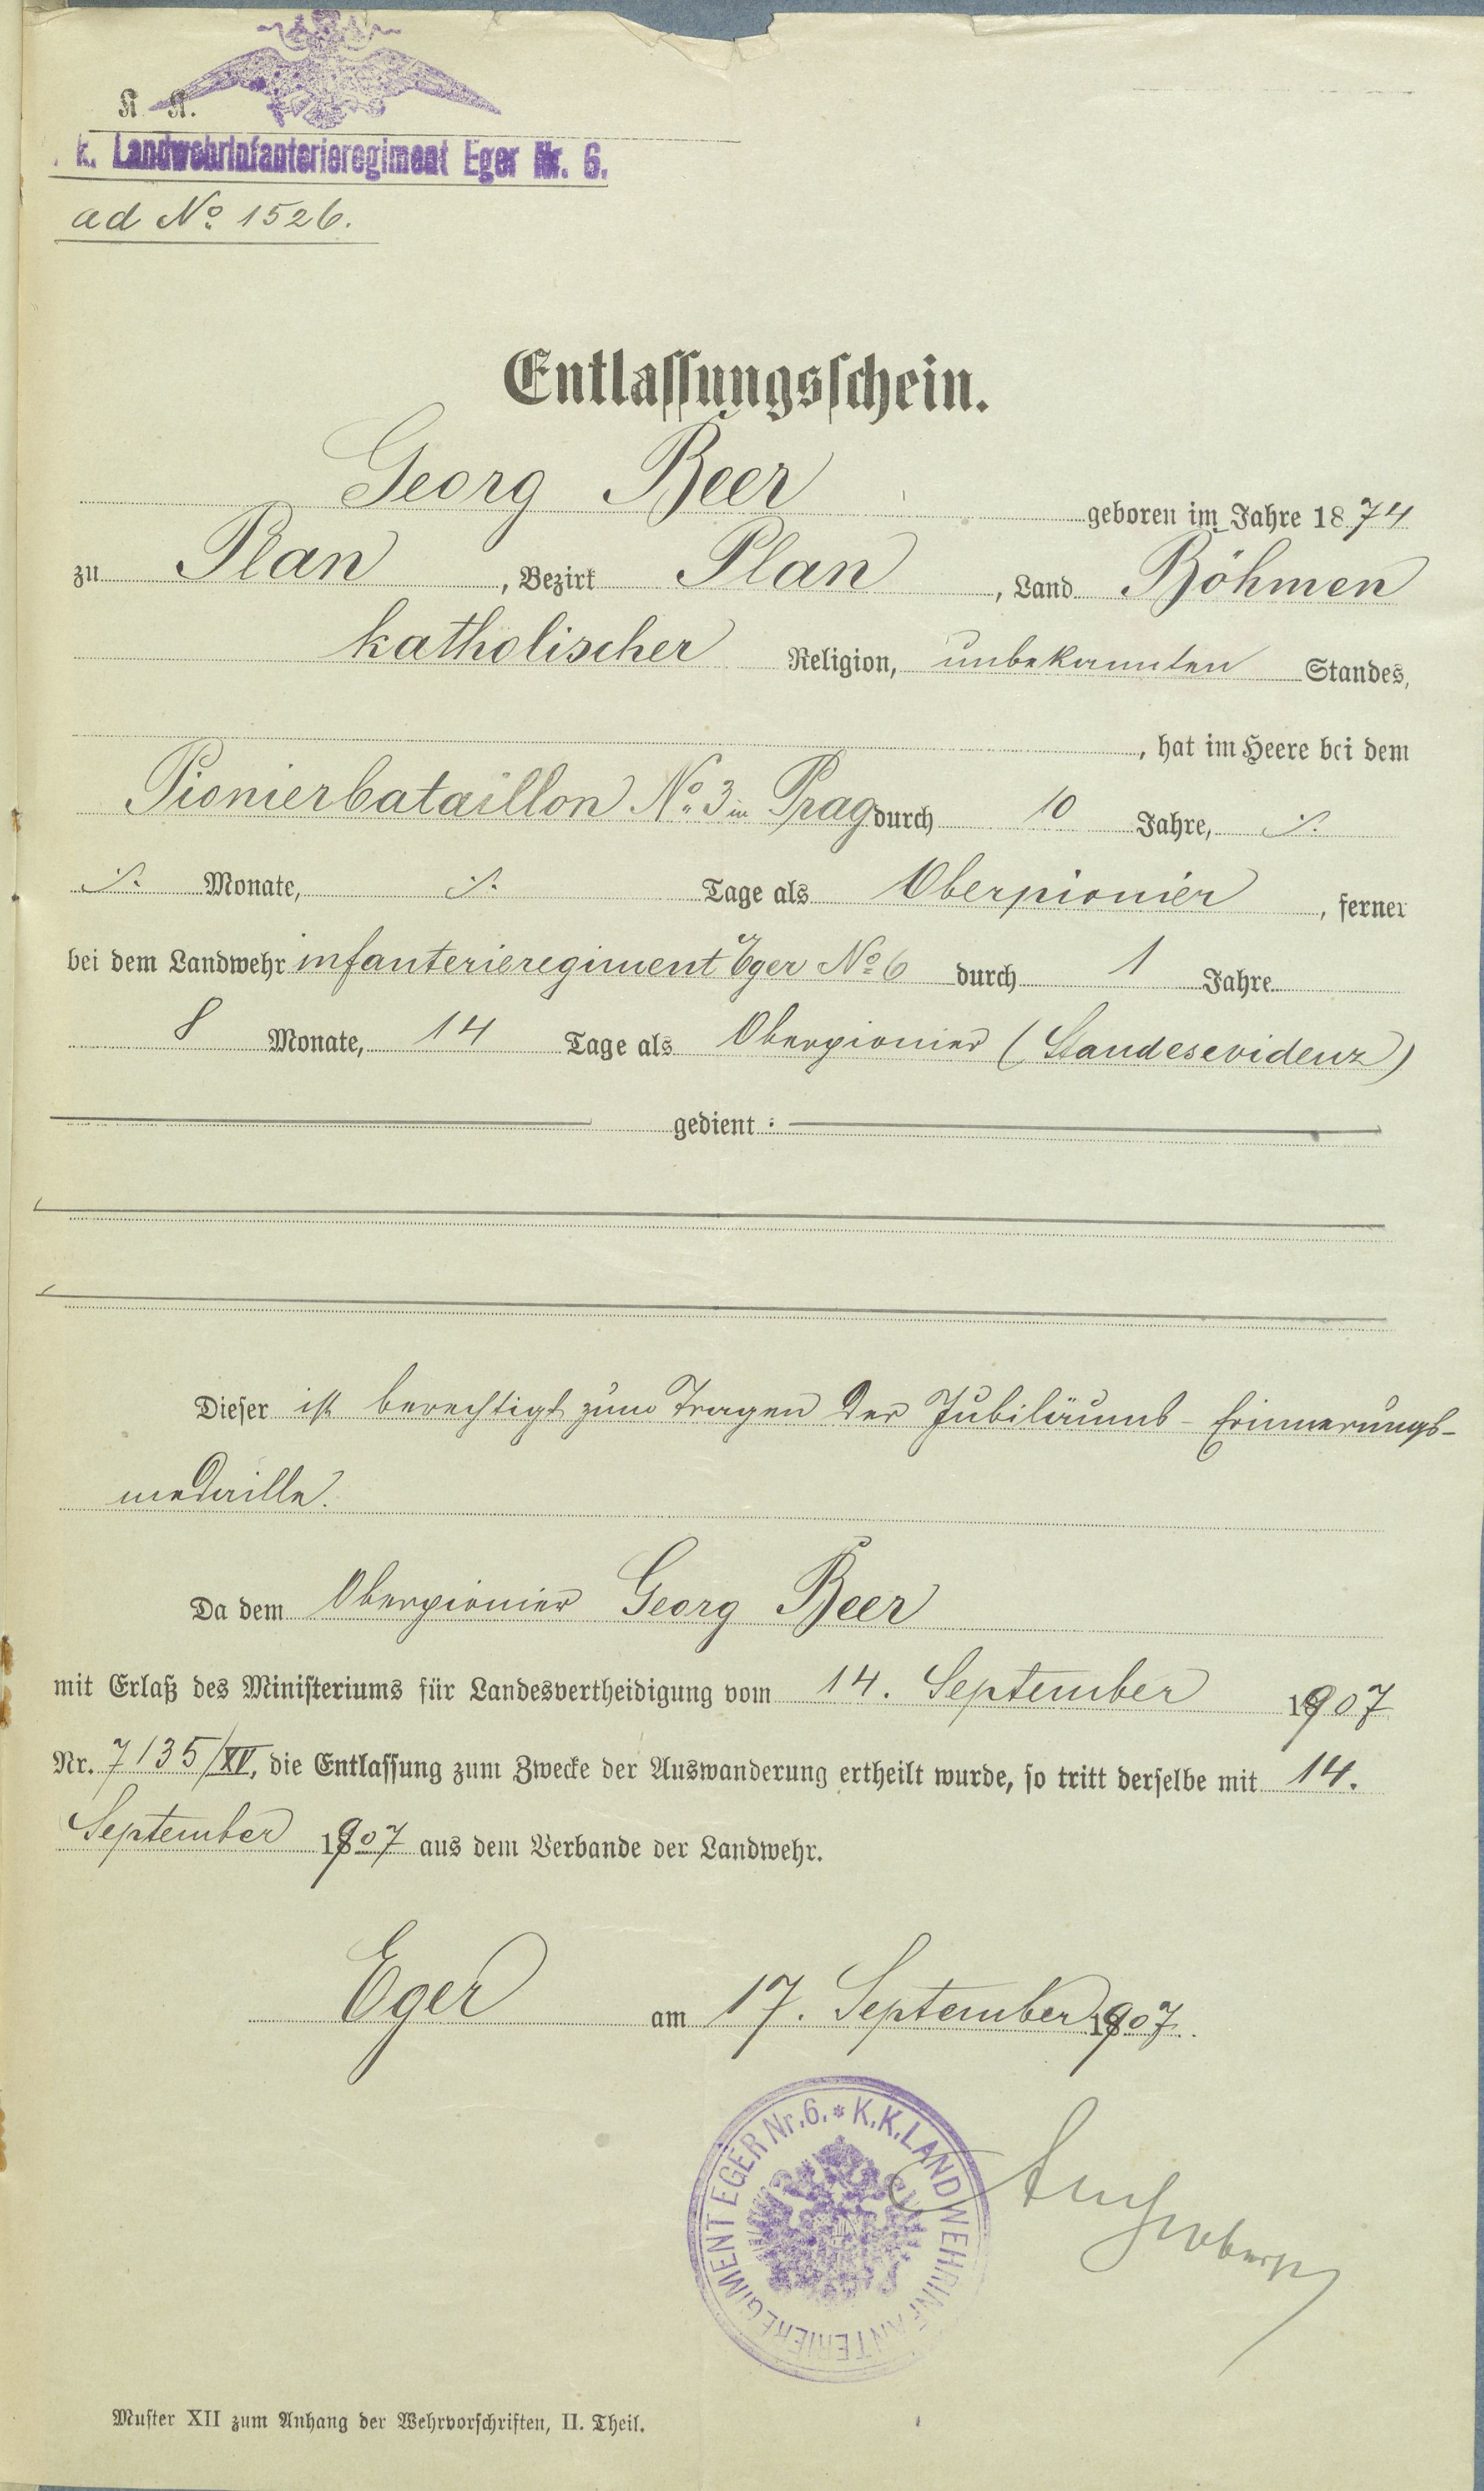 K. K.
k. Landwehrinfanterieregiment Eger Nr. 6.
ad No 1526.
Entlassungsschein.
Georg Beer geboren im Jahre 1874
zu Plan, Bezirk Plan, Land Böhmen
katholischer Religion, unbekannten Standes,
, hat im Heere bei dem
Pionierbataillon No 3 in Prag durch 10 Jahre, ·/·
·/· Monate, ·/· Tage als Oberpionier, ferner
bei dem Landwehrinfanterieregiment Eger No 6 durch 1 Jahre
8 Monate, 14 Tage als Oberpionier (Standesevidenz)
gedient :
Dieser ist berechtigt zum Tragen der Jubiläums-Erinnerungs-
medaille.
Da dem Oberpionier Georg Beer
mit Erlaß des Ministeriums für Landesvertheidigung vom 14. September 1907
Nr. 7135/XV, die Entlassung zum Zwecke der Auswanderung ertheilt wurde, so tritt derselbe mit 14.
September 1907 aus dem Verbande der Landwehr.
Eger am 17. September 1907.
K.K. LANDWEHRINFANTERIEREGIMENT EGER Nr. 6. *
Muster XII zum Anhang der Wehrvorschriften, II. Theil.